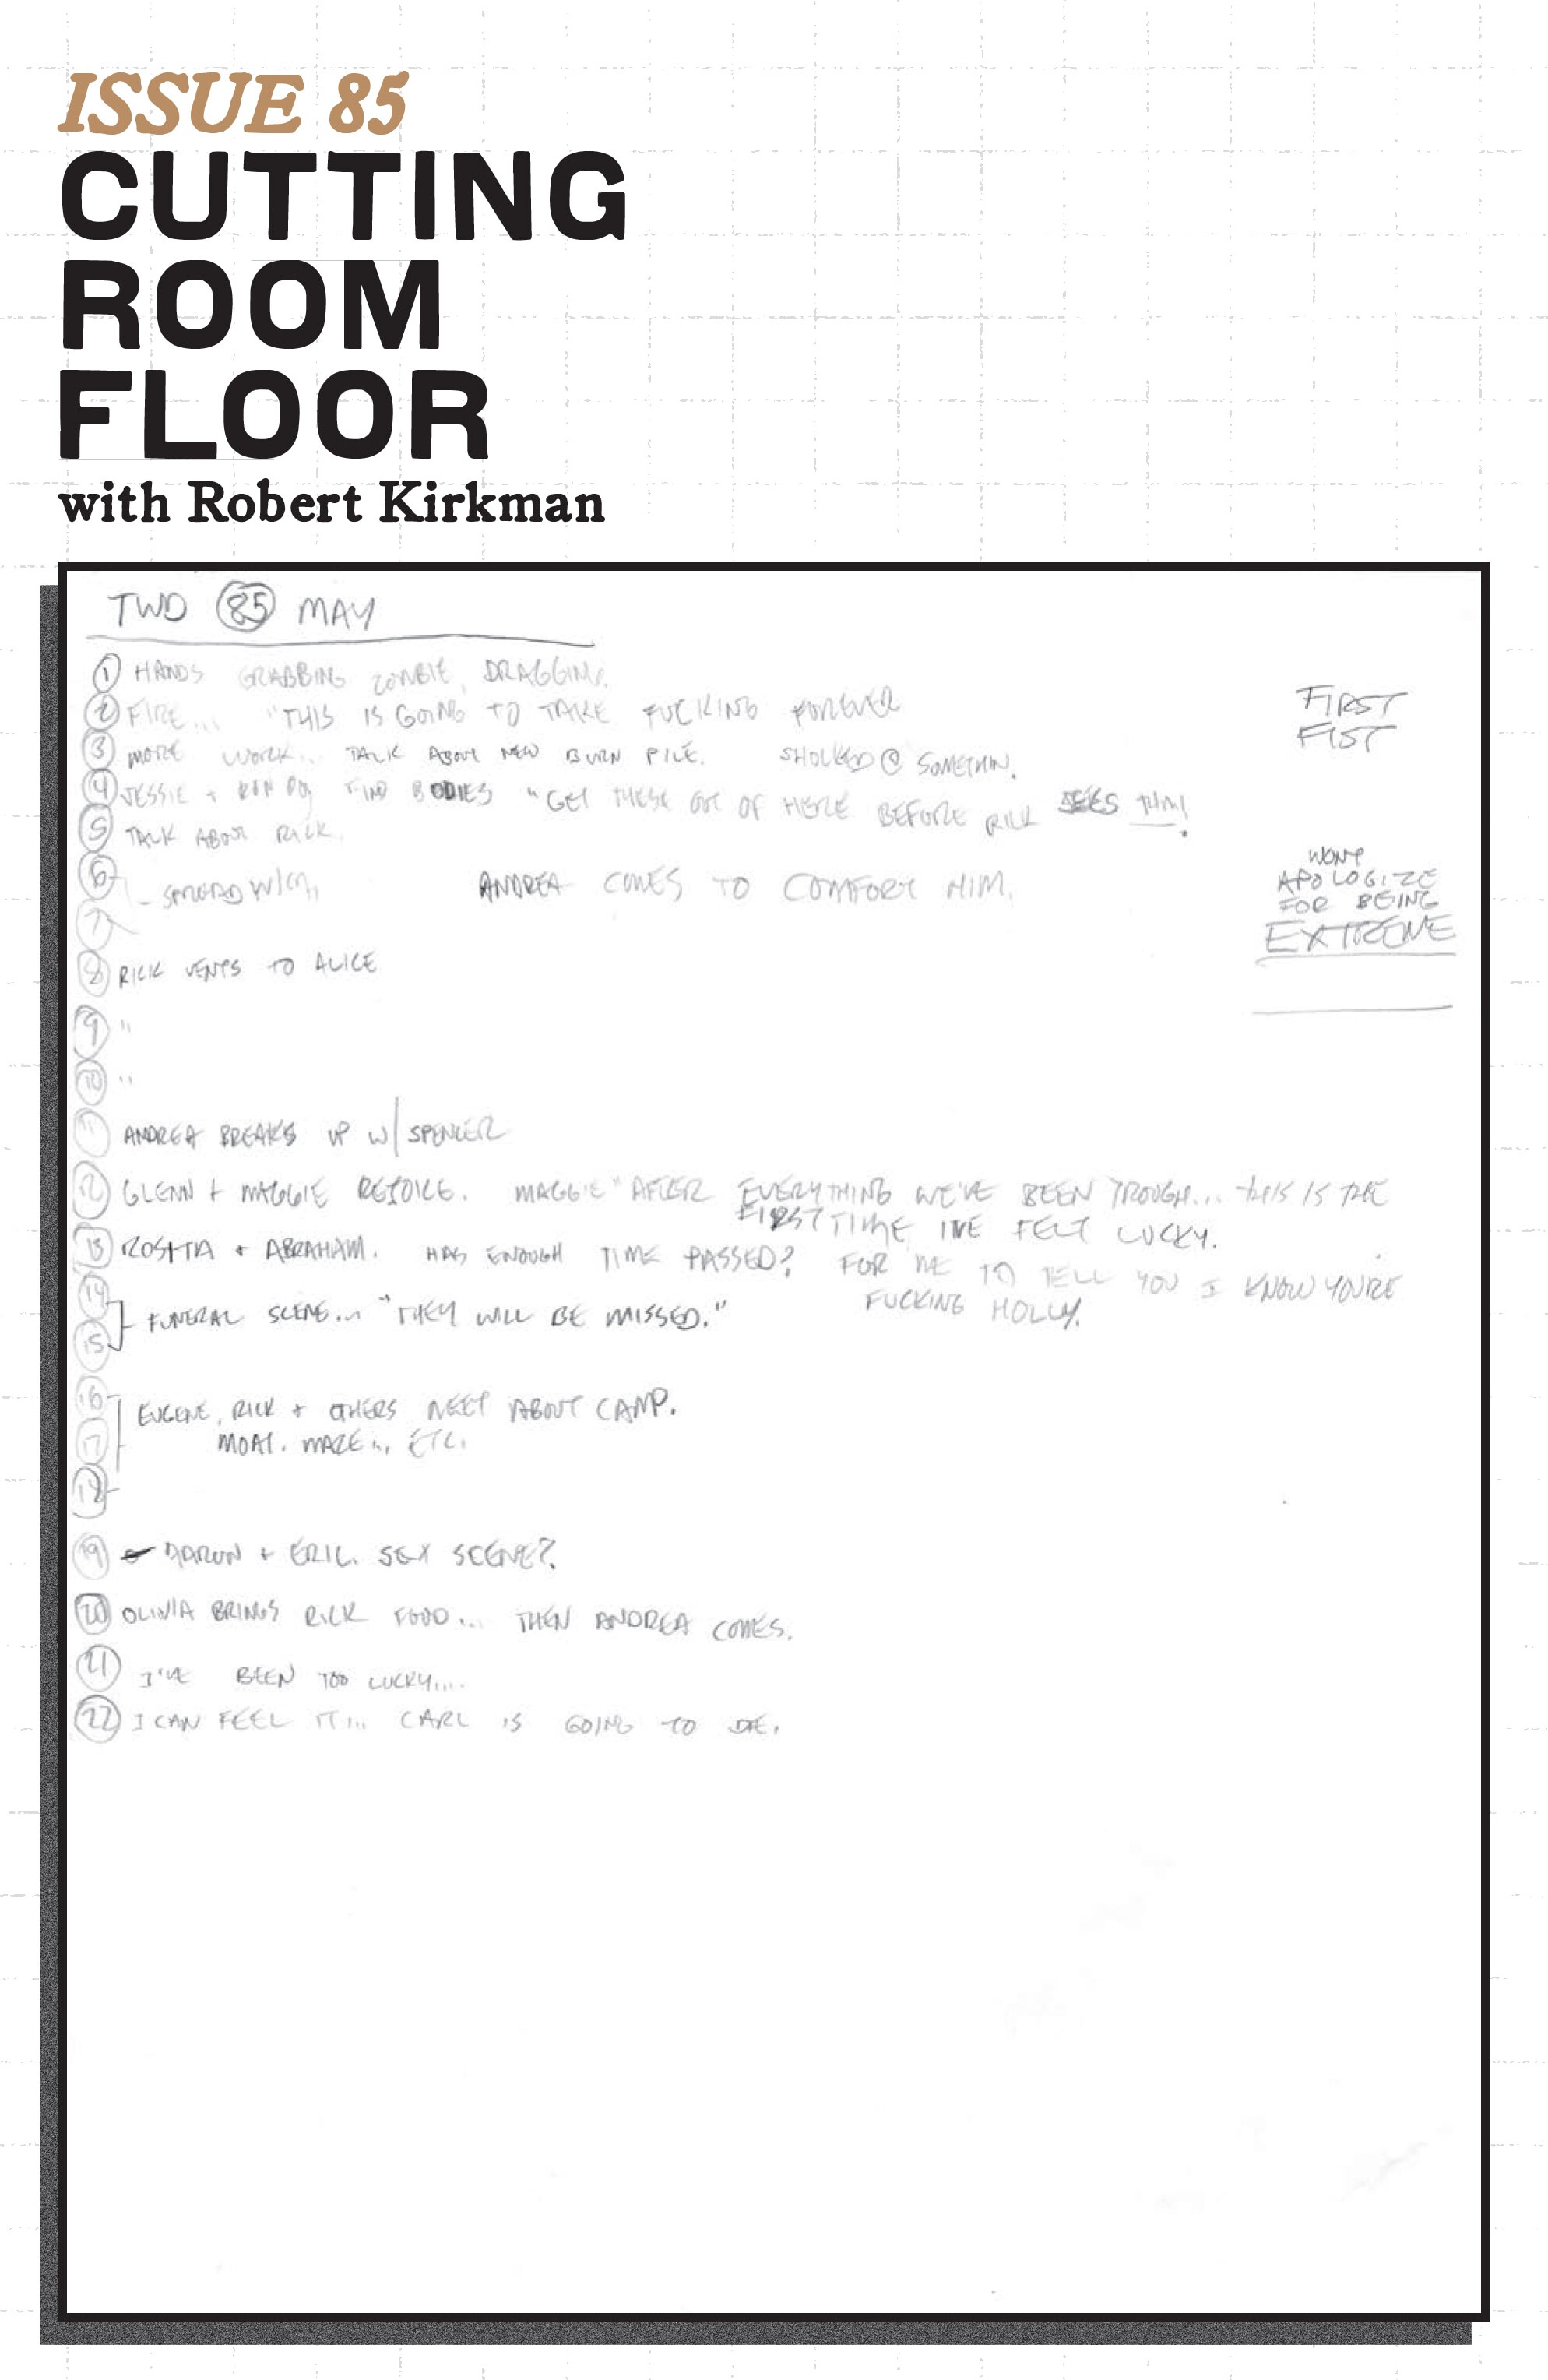 ISSUE 85
CUTTING
ROOM
FLOOR
with Robert Kirkman
TWD 85 MAY
1 HANDS GRABBING ZOMBIE, DRAGGING.
2 FIRE... "THIS IS GOING TO TAKE FUCKING FOREVER
3 MORE WORK... TALK ABOUT NEW BURN PILE. SHOCKED @ SOMETHIN.
4 JESSIE + FIND BODIES "GET THESE OUT OF HERE BEFORE RICK SEES
5 TALK ABOUT RICK.
6 - SPREAD ANDREA COMES TO COMFORT HIM.
7
8 RICK VENTS TO ALICE
9 "
10 "
11 ANDREA BREAKS UP W/ SPENCER
12 GLENN + MAGGIE REJOICE. MAGGIE "AFTER EVERYTHING WE'VE BEEN TROUGH... THIS IS THE
FIRST TIME I'VE FELT LUCKY.
13 ROSITA + ABRAHAM. HAS ENOUGH TIME PASSED? FOR ME TO TELL YOU I KNOW YOU'RE
FUCKING HOLLY.
14
FUNERAL SCENE... "THEY WILL BE MISSED."
15
16
EUGENE, RICK + OTHERS MEET ABOUT CAMP.
17
MOAT. MAZE... ETC.
18
19 AARON + ERIC. SEX SCENE?
20 OLIVIA BRINGS RICK FOOD... THEN ANDREA COMES.
21 I'VE BEEN TOO LUCKY....
22 I CAN FEEL IT... CARL IS GOING TO DIE.
FIRST
FIST
WON'T
APOLOGIZE
FOR BEING
EXTREME